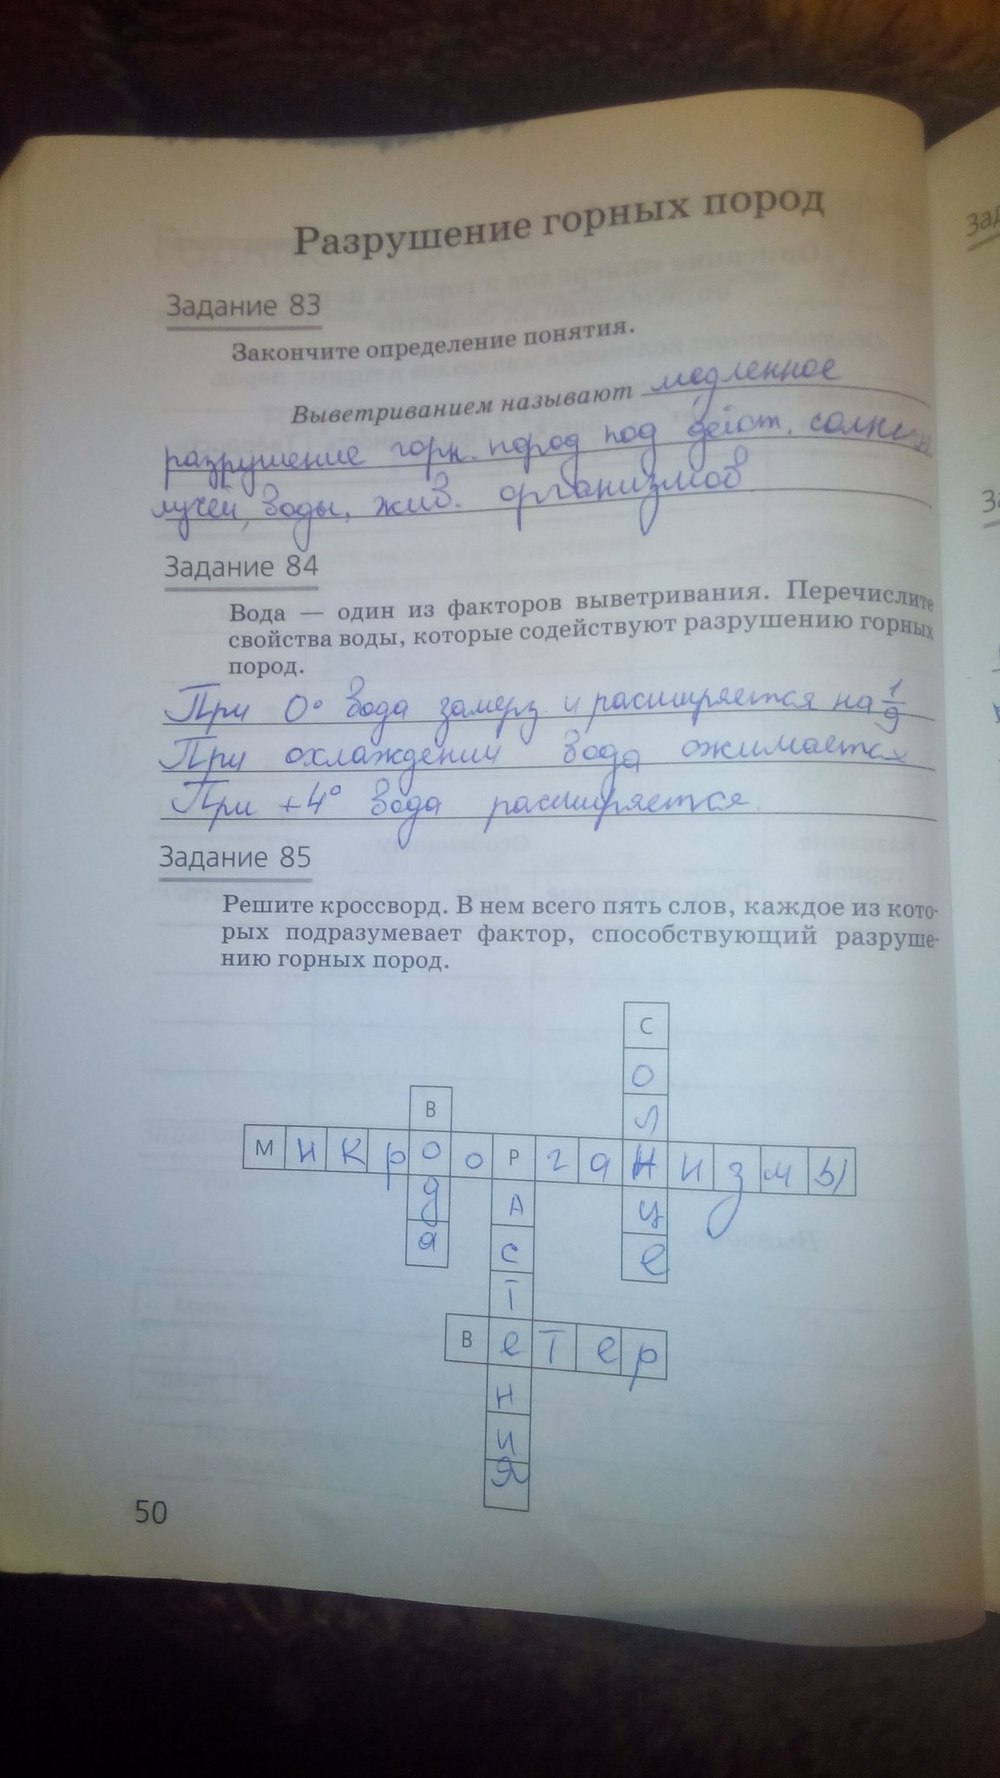 Разрушение горных пород
Зад
Задание 83
Закончите определение понятия.
Выветриванием называют медленное
разрушение горн. пород под дейст. солнечн
лучей, воды, жив. организмов
За
Задание 84
Вода — один из факторов выветривания. Перечислите
свойства воды, которые содействуют разрушению горных
пород.
При 0° вода замерз и расширяется на 1/9
При охлаждении вода сжимается
При +4° вода расширяется.
Задание 85
Решите кроссворд. В нем всего пять слов, каждое из кото-
рых подразумевает фактор, способствующий разруше-
нию горных пород.
Солнце
Вода
Микроорганизмы
Растения
Ветер
50